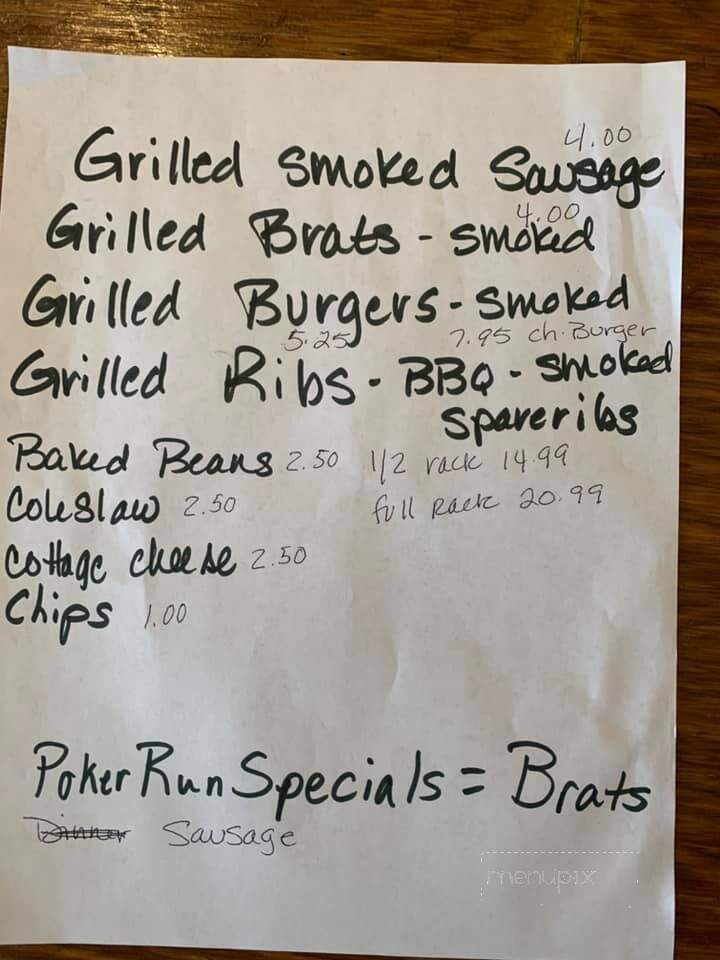 4.00
Grilled Smoked Sausage
4.00
Grilled Brats - Smoked
Grilled Burgers - Smoked
5.25 7.95 ch. Burger
Grilled Ribs - BBQ - Smoked
spareribs
Baked Beans 2.50 1/2 rack 14.99
Coleslaw 2.50 full Rack 20.99
Cottage cheese 2.50
Chips 1.00
Poker Run Specials = Brats
Dinner Sausage
menupix